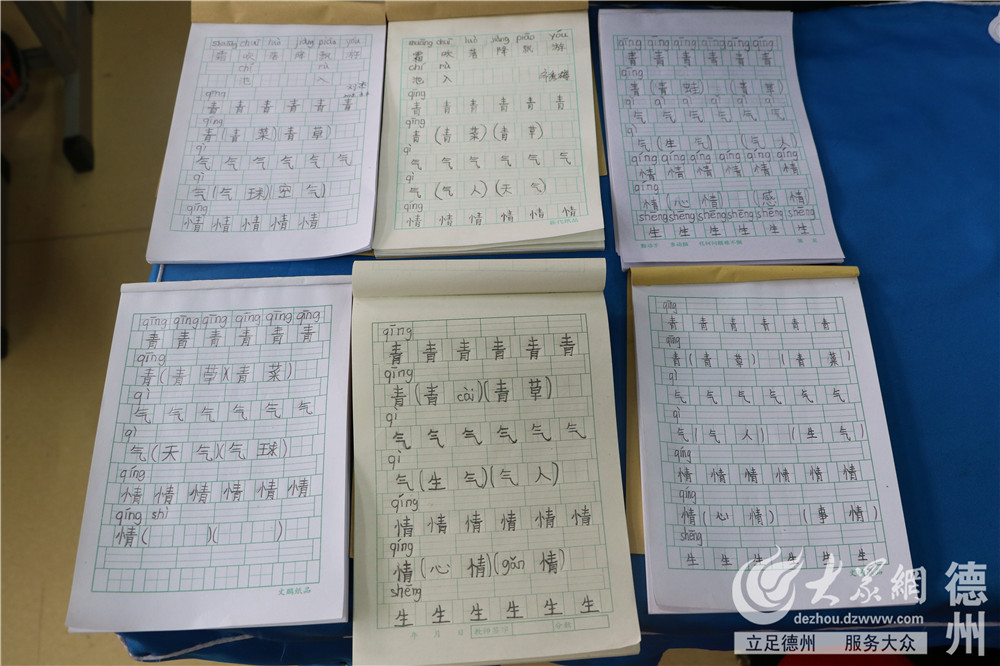 shuāng chuī luò jiàng piāo yóu
霜 吹 落 降 飘 游
chí rù
池 入
qīng
青 青 青 青 青 青
qīng
青(青 菜)(青 草)
qì
气 气 气 气 气 气
qì
气(气 球)(空 气)
qíng
情 情 情 情 情
shuāng chuī luò jiàng piāo yóu
霜 吹 落 降 飘 游
chí rù
池 入
qīng
青 青 青 青 青 青
qīng
青(青 菜)(青 草)
qì
气 气 气 气 气 气
qì
气(气 人)(天 气)
qíng
情 情 情 情 情 情
qīng qīng qīng qīng qīng qīng
青 青 青 青 青 青
qīng
青(青 蛙)(青 草)
qì qì qì qì qì qì
气 气 气 气 气 气
qì
气(生 气)(气 人)
qíng qíng qíng qíng qíng qíng
情 情 情 情 情 情
qíng
情(心 情)(感 情)
shēng shēng shēng shēng shēng shēng
生 生 生 生 生 生
qīng qīng qīng qīng qīng qīng
青 青 青 青 青 青
qīng
青(青 草)(青 菜)
qì
气 气 气 气 气 气
qì
气(天 气)(气 球)
qíng
情 情 情 情 情 情
qíng shì
情( )( )
文鹏纸品
qīng
青 青 青 青 青 青
qīng
青(青 cài)(青 草)
qì
气 气 气 气 气 气
qì
气(生 气)(气 人)
qíng
情 情 情 情 情 情
qíng
情(心 情)(gǎn 情)
shēng
生 生 生 生 生 生
年 月 日 教师签字 分数
qīng
青 青 青 青 青 青
qīng
青(青 草)(青 菜)
qì
气 气 气 气 气 气
qì
气(气 人)(生 气)
qíng
情 情 情 情 情 情
qíng
情(心 情)(事 情)
shēng
生 生 生 生 生 生
大眾網
dezhou.dzwww.com
立足德州 服务大众
德州